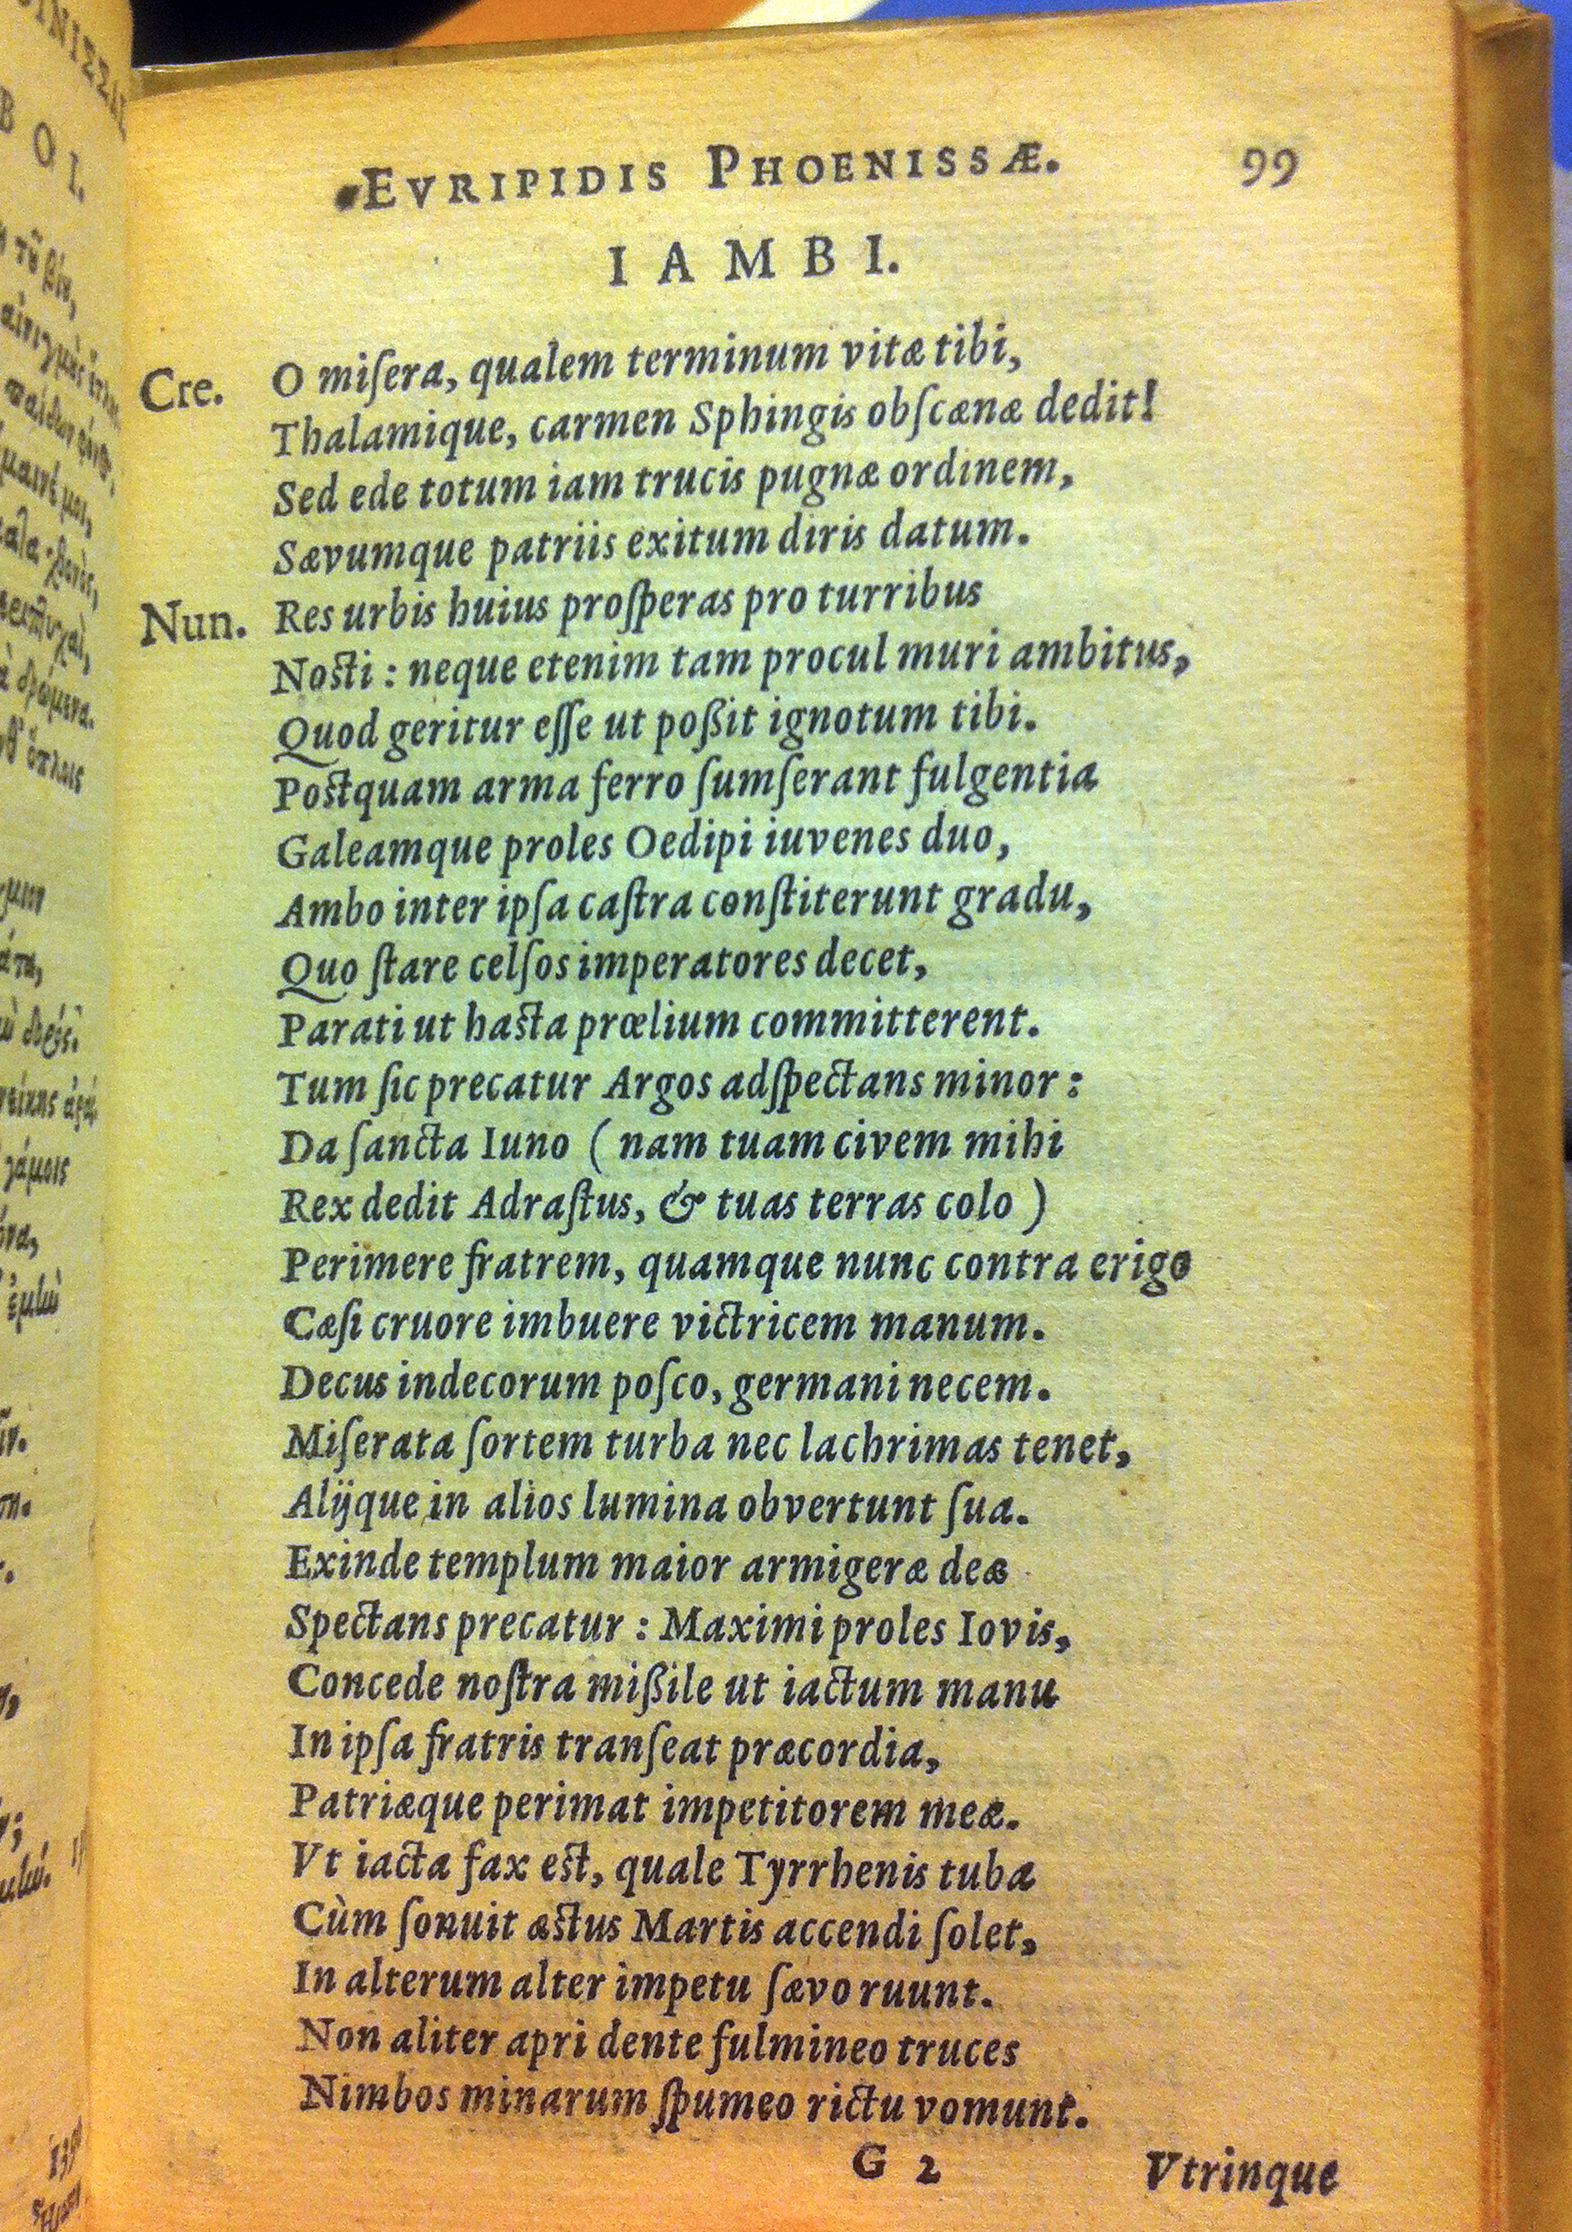 EVRIPIDIS PHOENISSÆ. 99
IAMBI.
Cre. O miſera, qualem terminum vitæ tibi,
Thalamique, carmen Sphingis obſcænæ dedit!
Sed ede totum iam trucis pugnæ ordinem,
Sævumque patriis exitum diris datum.
Nun. Res urbis huius proſperas pro turribus
Nosti: neque etenim tam procul muri ambitus,
Quod geritur eſſe ut poßit ignotum tibi.
Postquam arma ferro ſumſerant fulgentia
Galeamque proles Oedipi iuvenes duo,
Ambo inter ipſa caſtra conſtiterunt gradu,
Quo ſtare celſos imperatores decet,
Parati ut hasta prœlium committerent.
Tum ſic precatur Argos adſpectans minor:
Da ſancta Iuno (nam tuam civem mihi
Rex dedit Adraſtus, & tuas terras colo)
Perimere fratrem, quamque nunc contra erigo
Cæſi cruore imbuere victricem manum.
Decus indecorum poſco, germani necem.
Miſerata ſortem turba nec lachrimas tenet,
Alijque in alios lumina obvertunt ſua.
Exinde templum maior armigeræ deæ
Spectans precatur: Maximi proles Iovis,
Concede noſtra mißile ut iactum manu
In ipſa fratris tranſeat præcordia,
Patriæque perimat impetitorem meæ.
Vt iacta fax est, quale Tyrrhenis tubæ
Cùm ſonuit æstus Martis accendi ſolet,
In alterum alter impetu ſævo ruunt.
Non aliter apri dente fulmineo truces
Nimbos minarum ſpumeo rictu vomunt.
G 2 Vtrinque